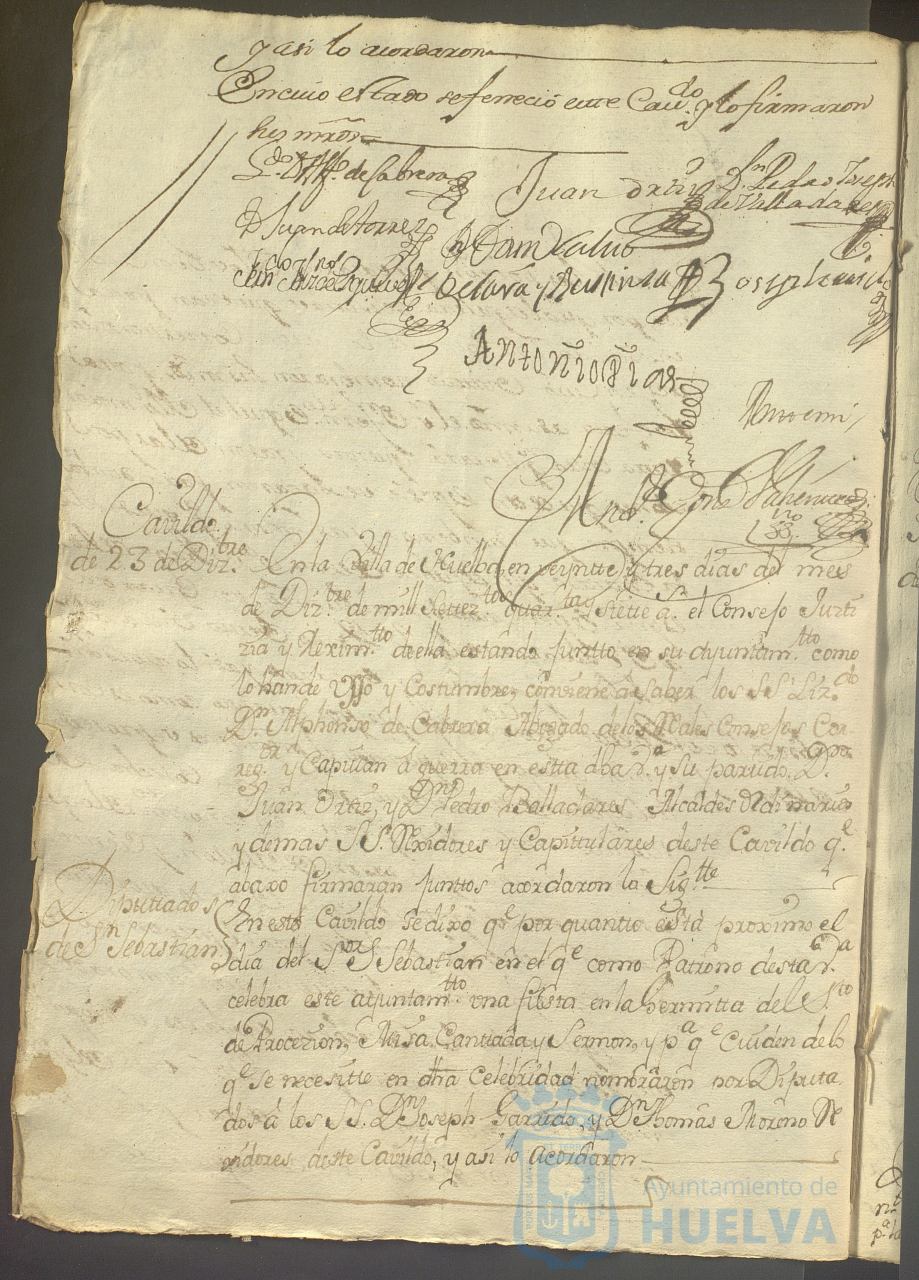 y asi lo acordaron
En cuio estado se feneció este Cavdo. y lo firmaron
sus mrds.
Ldo. Dn. Alphº. de Cabrera
Juan Ortiz
Dn. Pedro Joseph
de Valladares
D Juan de Torres
Antonio Pias
Ante mi,
Cavildo
de 23 de Dizre.
En la Villa de Huelva, en veyntte y tres dias del mes
de Dizre. de mill settezttos. quartta. y siette as. el Consejo Justi
zia y Reximtto. de ella estando juntto en su ayuntamtto. como
lo han de Usso y Costumbre, combiene a saber los SSs. Lizdo.
Dn. Alphonso de Cabrera Abogado de los Reales Consejos Cor-
regor. y Capitan à guerra en estta dha va. y su partido, Dn.
Juan Ortiz, y Dn. Pedro Balladares Alcaldes Ordinarios
y demas SSs. Rexidores y Capittulares deste Cavildo qe.
abaxo firmaran junttos acordaron lo Sigtte.
Diputtados
de Sn. Sebastian
En este Cavildo se dixo qe. por quantto està proximo el
dia del Sor. S. Sebastian en el qe. como Patrono desta va.
celebra este ayuntamtto. una fiesta en la hermitta del Stto.
de Prozezion, Misa Canttada y Sermon, y pa. qe. cuiden de lo
qe. se necesitte en dha celebridad nombraron por Diputa
dos à los SSs. Dn. Joseph Garrido, y Dn. Thomas Moreno Re
xidores deste Cavildo, y asi lo acordaron
Ayuntamiento de
HUELVA